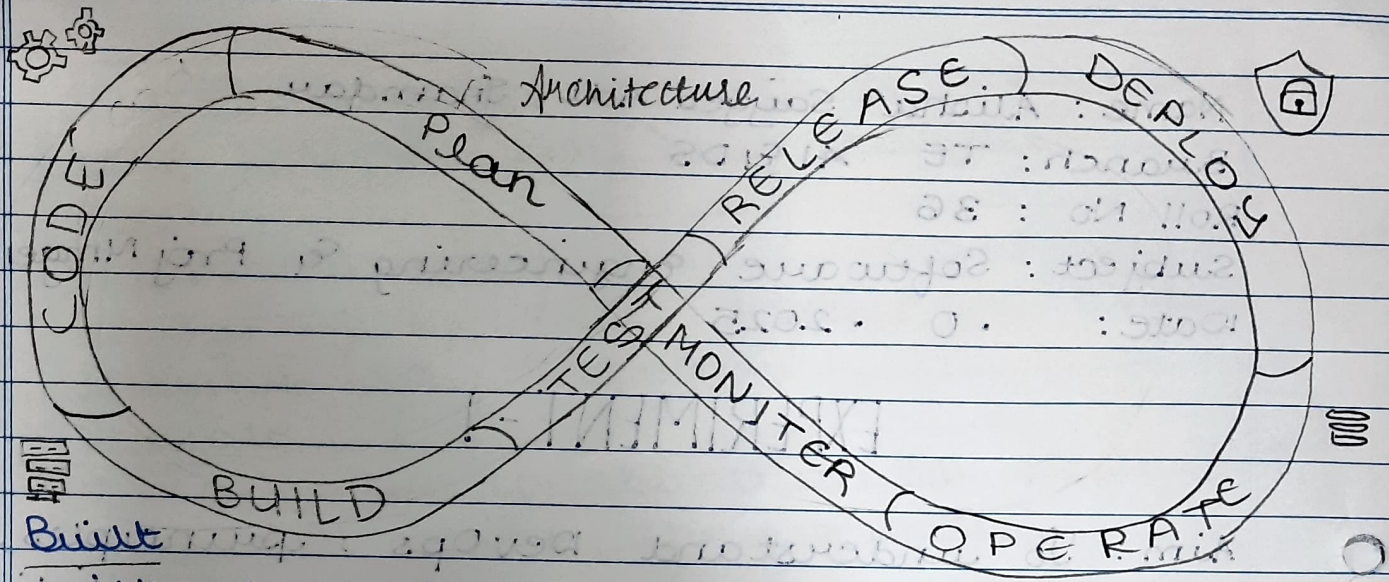 Architecture
Plan
CODE
BUILD
TEST
RELEASE
DEPLOY
OPERATE
MONITER
Built